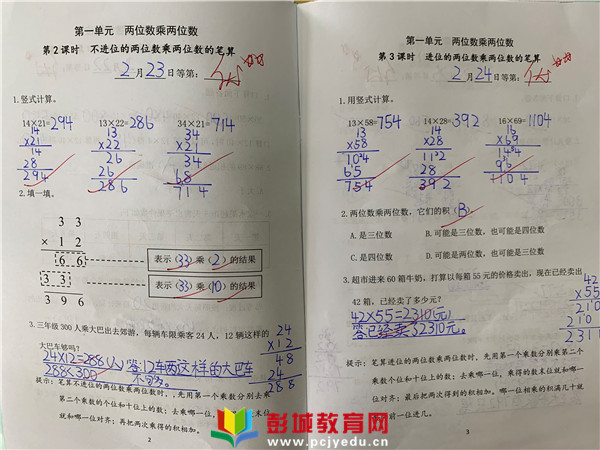 第一单元 两位数乘两位数
第2课时 不进位的两位数乘两位数的笔算
2月23日等第:
1.竖式计算。
14×21=294 13×22=286 34×21=714
14 13 34
×21 ×22 ×21
14 26 34
28 26 68
294 286 714
2.填一填。
3 3
× 1 2
6 6 表示(33)乘(2)的结果
3 3 表示(33)乘(10)的结果
3 9 6
3.三年级300人乘大巴出去郊游,每辆车限乘客24人,12辆这样的
大巴车够吗?
24×12=288(人)
288<300
答:12车两这样的大巴车
不够。
24
×12
48
24
288
提示:笔算不进位的两位数乘两位数时,先用第一个乘数分别去乘
第二个乘数的个位和十位上的数;去乘哪一位,
就和哪一位对齐;再把两次乘得的积相加。
2
第一单元 两位数乘两位数
第3课时 进位的两位数乘两位数的笔算
2月24日等第:
1.用竖式计算。
13×58=754 14×28=392 16×69=1104
13 14 16
×58 ×28 ×69
104 112 144
65 28 96
754 392 1104
2.两位数乘两位数,它们的积(B)。
A.是三位数 B.可能是三位数,也可能是四位数
C.是四位数 D.可能是两位数,也可能是三位数
3.超市进来60箱牛奶,打算以每箱55元的价格卖出,现在已经卖出
42箱,已经卖了多少元?
42×55=2310(元)
答:已经卖2310元。
42
×55
210
210
2310
提示:笔算进位的两位数乘两位数时,先用第一个乘数分别乘第二个
乘数个位和十位上的数;去乘哪一位,乘得的数末位就和哪一
位对齐;最后把两次得到的积相加。哪一位相乘的积满几十就
前一位进几。
3
彭城教育网
www.pcjyedu.cn